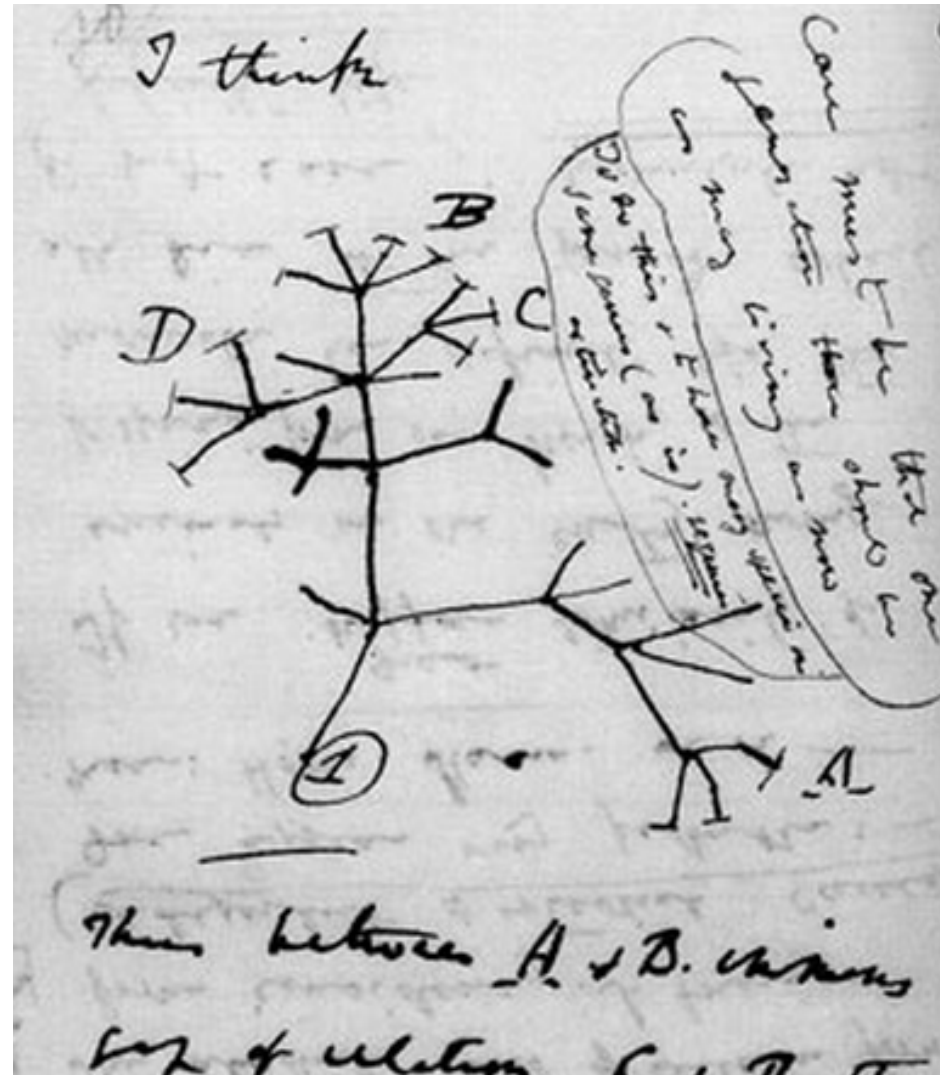 I think
Case must be that one
generation then should be
as many living as now
To do this & to have many species in
same genus (as is). requires
extinction.
B
C
D
A
1
Thus between A & B. immens
gap of relation. C & B. The